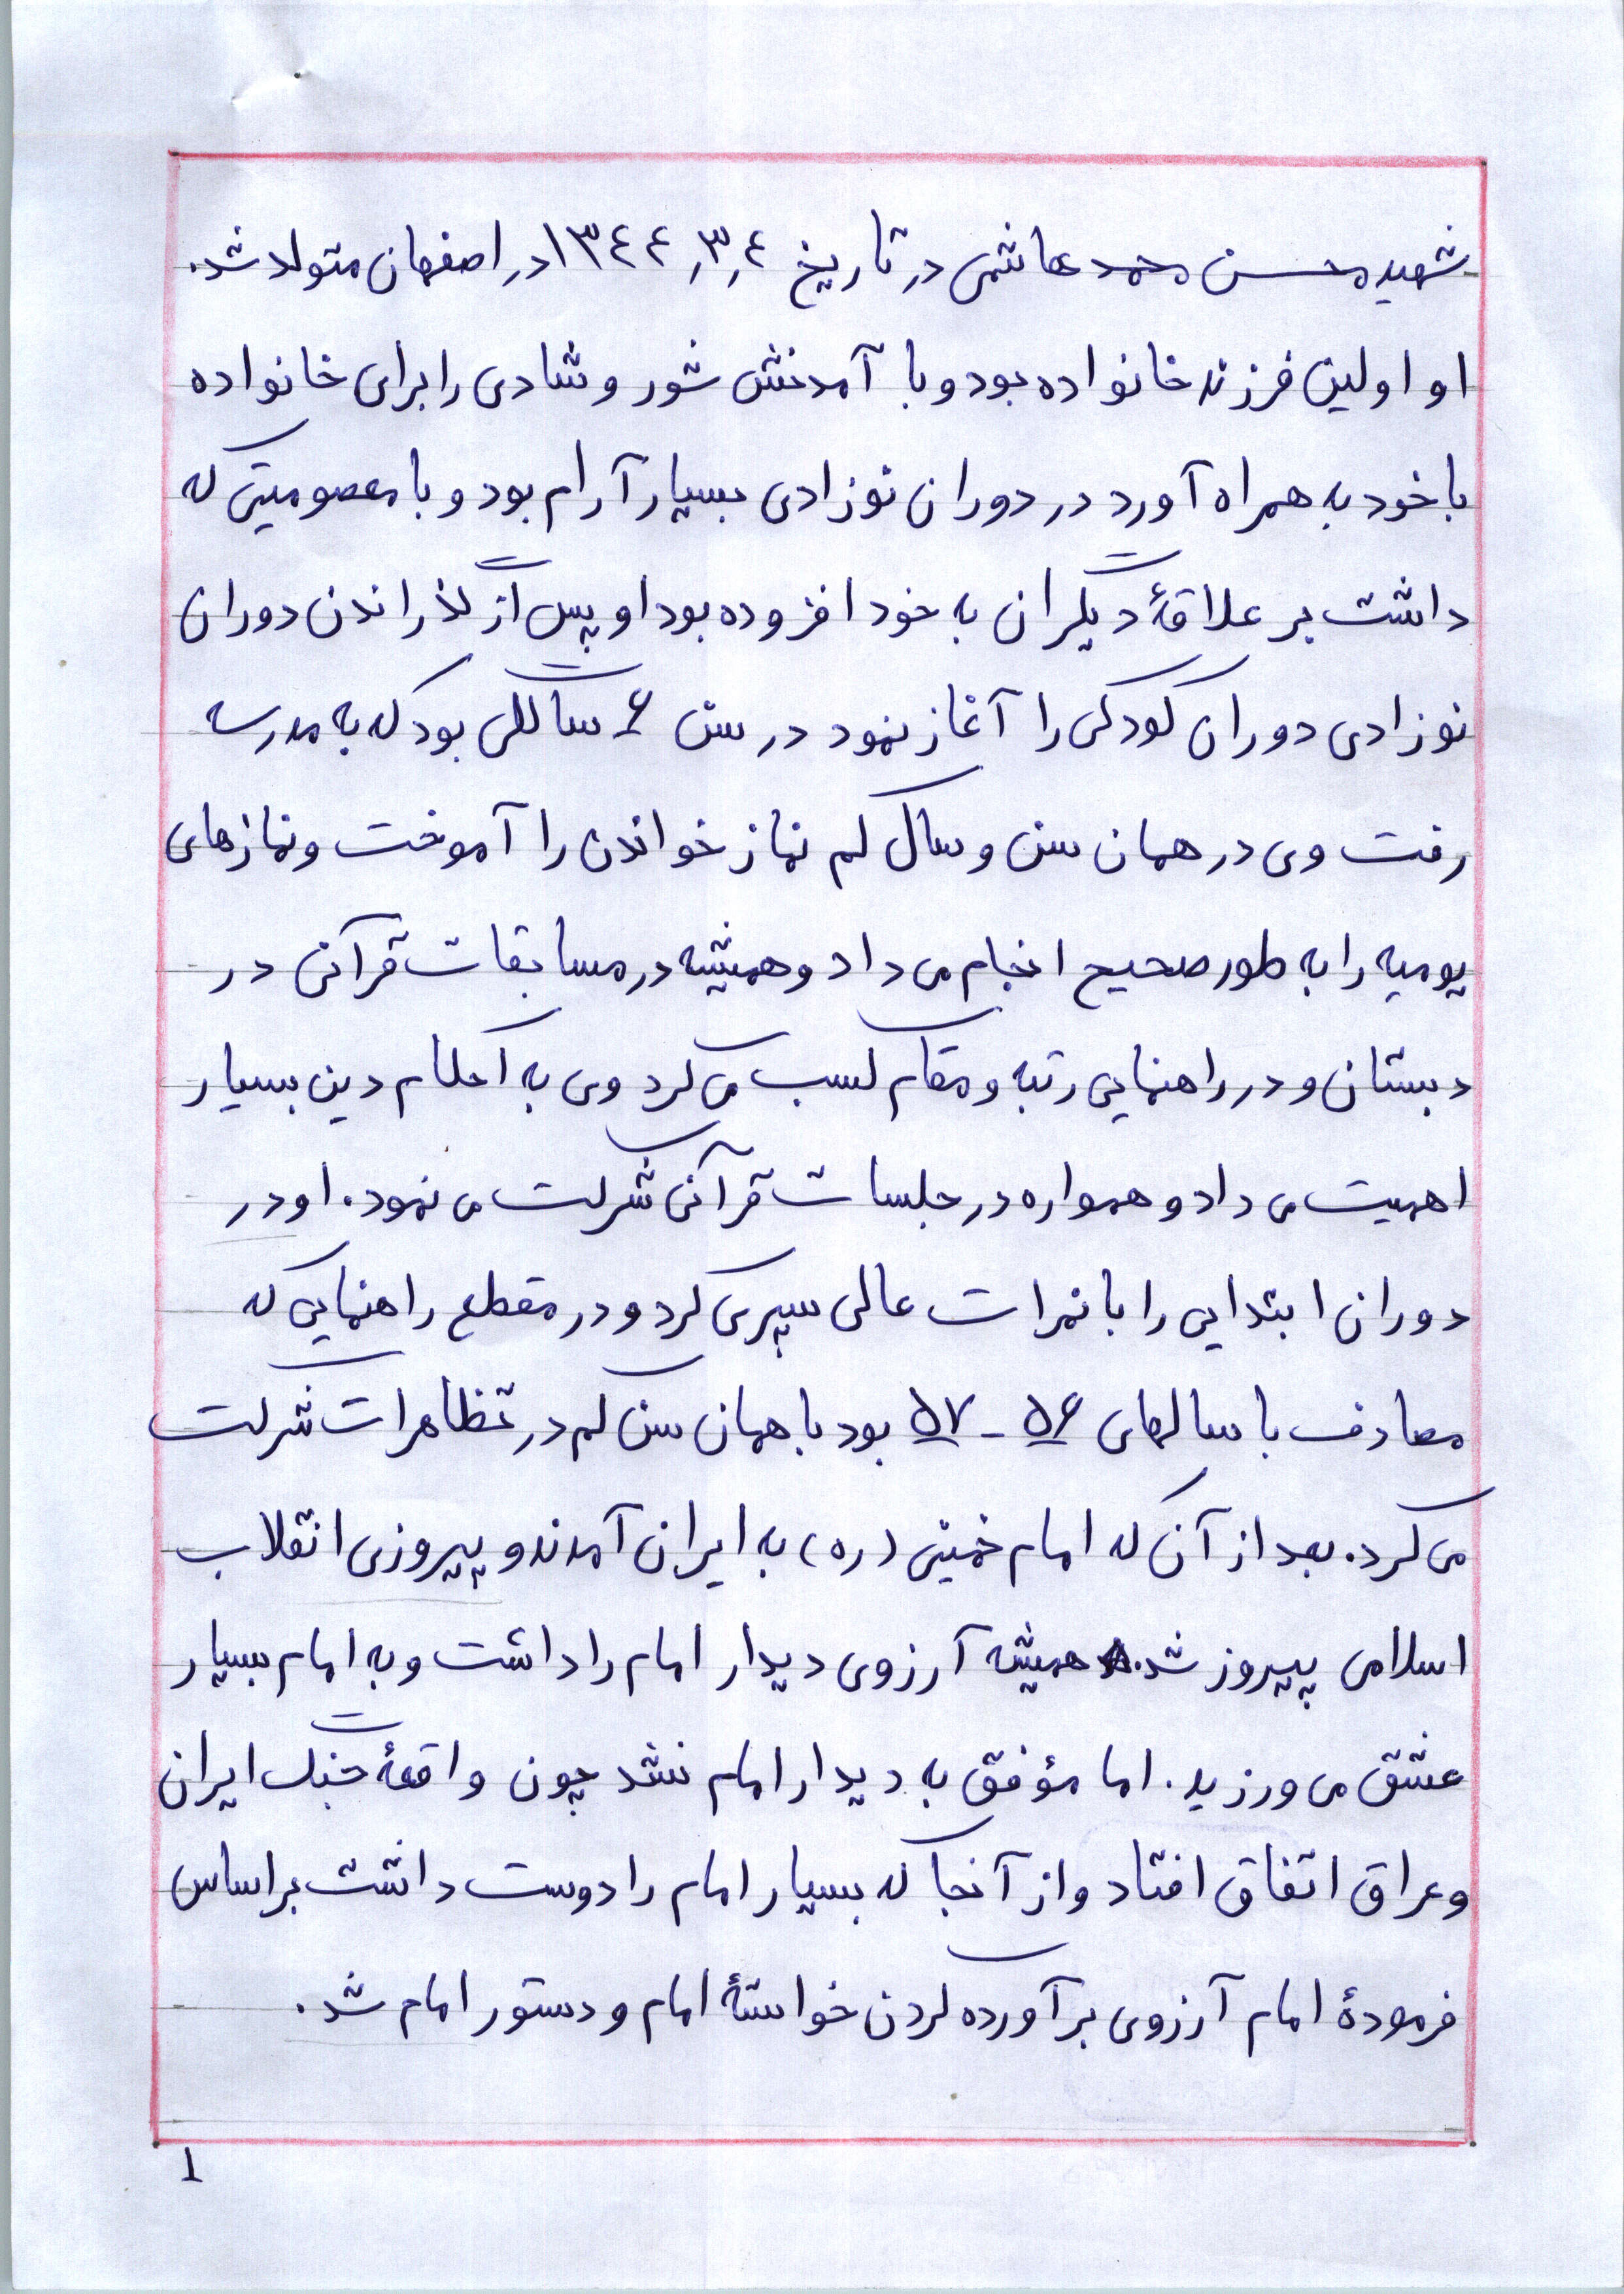 شهید محسن محمد هاشمی در تاریخ ۱۳٤٤٫۳٫٤ در اصفهان متولد شد.
او اولین فرزند خانواده بود و با آمدنش شور و شادی را برای خانواده
با خود به همراه آورد در دوران نوزادی بسیار آرام بود و با معصومیتی که
داشت بر علاقهٔ دیگران به خود افزوده بود او پس از گذراندن دوران
نوزادی دوران کودکی را آغاز نمود در سن ۶ سالگی بود که به مدرسه
رفت وی در همان سن و سال کم نماز خواندن را آموخت و نمازهای
یومیه را به طور صحیح انجام می داد و همیشه در مسابقات قرآنی در
دبستان و در راهنمایی رتبه و مقام کسب می کرد وی به احکام دین بسیار
اهمیت می داد و همواره در جلسات قرآنی شرکت می نمود. او در
دوران ابتدایی را با نمرات عالی سپری کرد و در مقطع راهنمایی که
مصادف با سالهای ۵۶ - ۵۷ بود با همان سن کم در تظاهرات شرکت
می کرد. بعد از آن که امام خمینی (ره) به ایران آمدند و پیروزی انقلاب
اسلامی پیروز شد. همیشه آرزوی دیدار امام را داشت و به امام بسیار
عشق می ورزید. اما مؤفق به دیدار امام نشد چون واقعهٔ جنگ ایران
و عراق اتفاق افتاد و از آنجا که بسیار امام را دوست داشت بر اساس
فرمودهٔ امام آرزوی برآورده کردن خواستهٔ امام و دستور امام شد.
۱